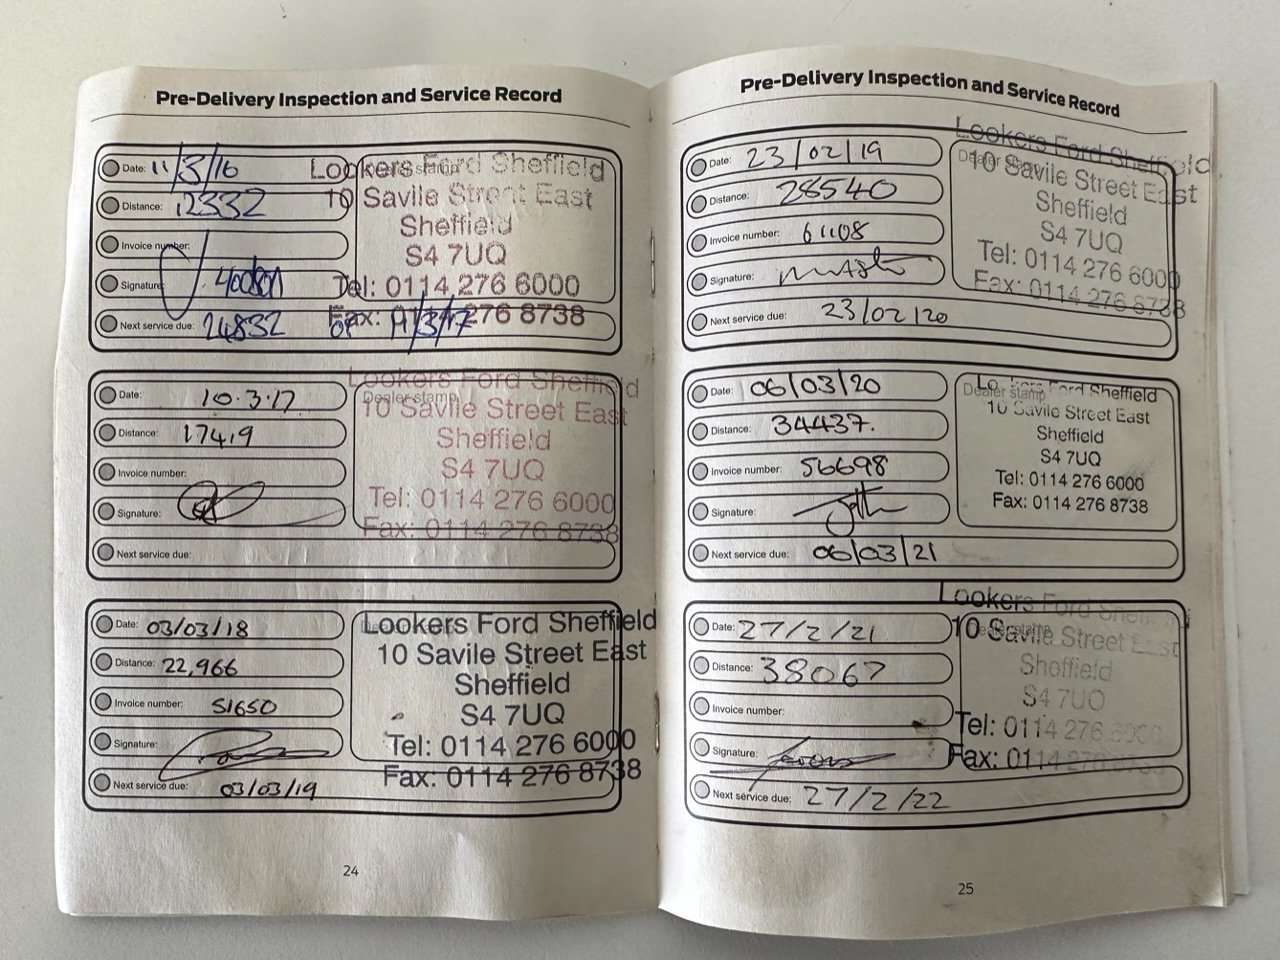 Pre-Delivery Inspection and Service Record
Date: 11/3/16
Distance: 12332
Invoice number:
Signature:
Next service due: 24832 or 11/3/17
Dealer stamp
Lookers Ford Sheffield
10 Savile Street East
Sheffield
S4 7UQ
Tel: 0114 276 6000
Fax: 0114 276 8738
Date: 10.3.17
Distance: 17419
Invoice number:
Signature:
Next service due:
Dealer stamp
Lookers Ford Sheffield
10 Savile Street East
Sheffield
S4 7UQ
Tel: 0114 276 6000
Fax: 0114 276 8738
Date: 03/03/18
Distance: 22,966
Invoice number: 51650
Signature:
Next service due: 03/03/19
Lookers Ford Sheffield
10 Savile Street East
Sheffield
S4 7UQ
Tel: 0114 276 6000
Fax: 0114 276 8738
24
Pre-Delivery Inspection and Service Record
Date: 23/02/19
Distance: 28540
Invoice number: 61108
Signature:
Next service due: 23/02/20
Dealer stamp
Lookers Ford Sheffield
10 Savile Street East
Sheffield
S4 7UQ
Tel: 0114 276 6000
Fax: 0114 276 8738
Date: 06/03/20
Distance: 34437.
Invoice number: 56698
Signature:
Next service due: 06/03/21
Dealer stamp
Lookers Ford Sheffield
10 Savile Street East
Sheffield
S4 7UQ
Tel: 0114 276 6000
Fax: 0114 276 8738
Date: 27/2/21
Distance: 38067
Invoice number:
Signature:
Next service due: 27/2/22
Dealer stamp
Lookers Ford Sheffield
10 Savile Street East
Sheffield
S4 7UQ
Tel: 0114 276 6000
Fax: 0114 276 8738
25